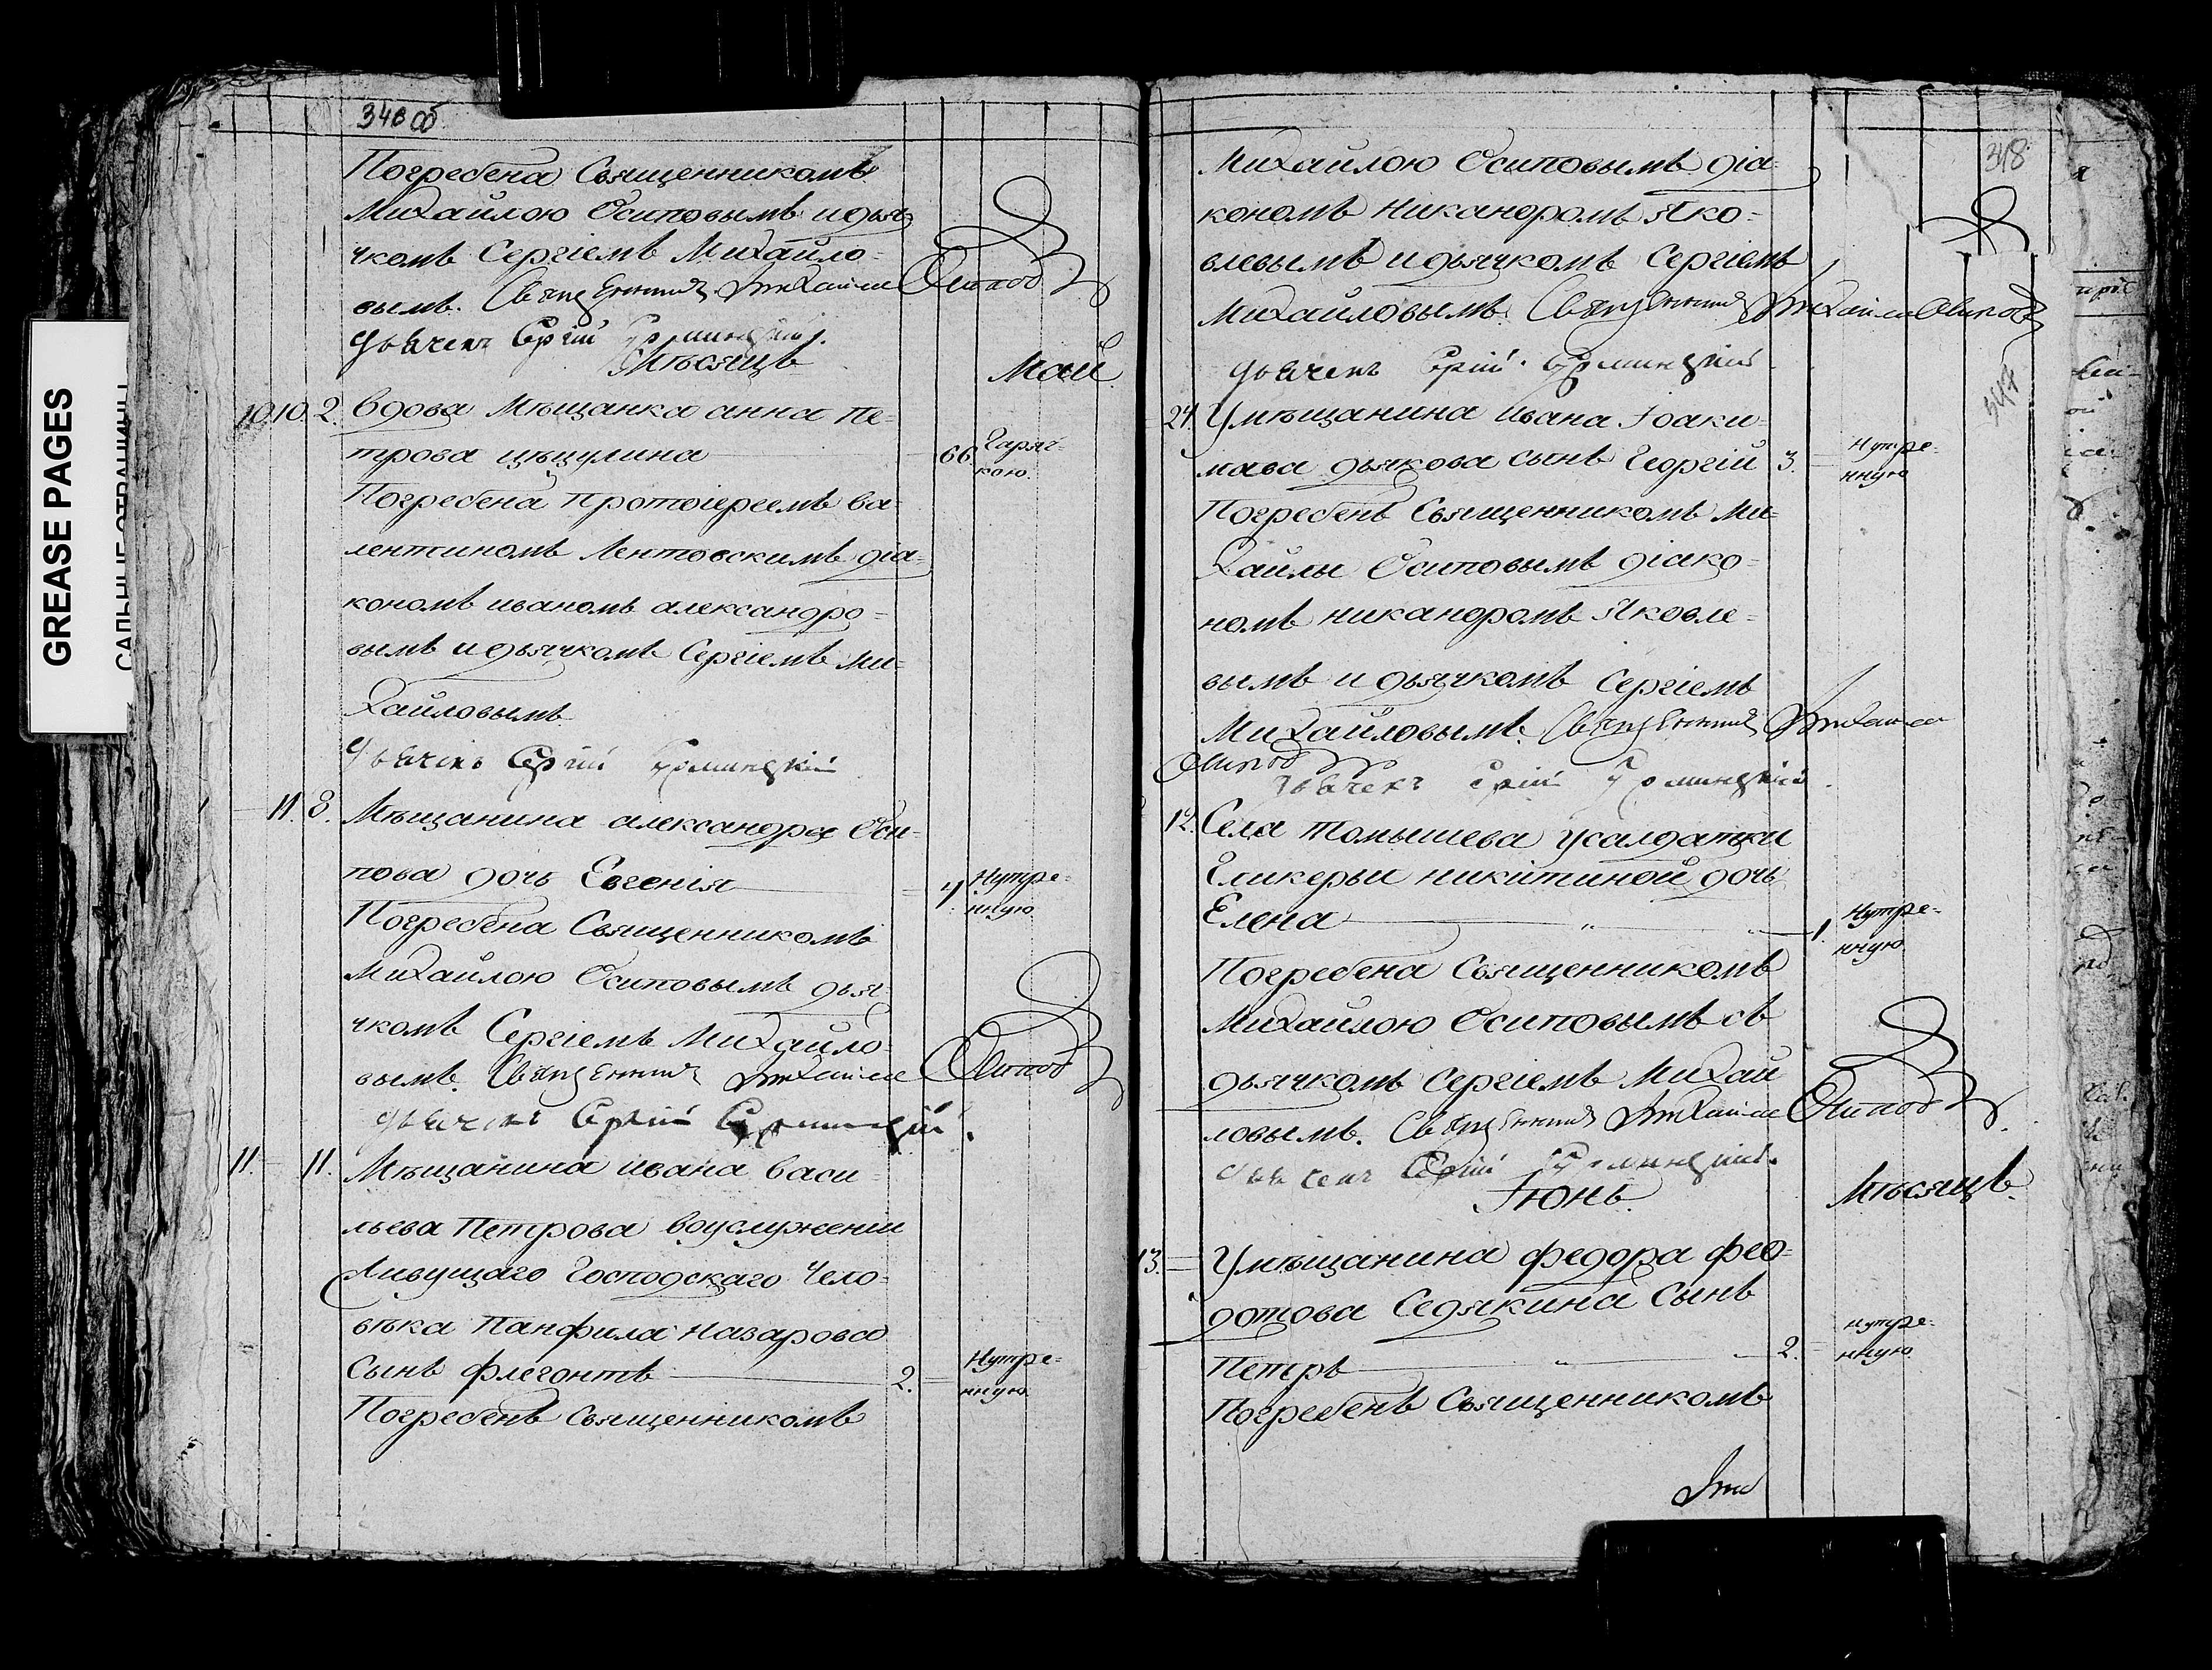 GREASE PAGES
346 об.
Погребена Священникомъ
Михайлою Осиповымъ и дья-
чкомъ Сергіемъ Михайло-
вымъ. Священникъ Михаилъ Осипов
дьячекъ Сергій
Мѣсяцъ Май
10. 10. 2. Вдова Мѣщанка анна пе-
трова 66. Гаряч-
кою.
Погребена протоіереемъ ва-
лентиномъ Лентовскимъ діа-
кономъ иваномъ александро-
вымъ и дьячкомъ Сергіемъ Ми-
хайловымъ
дьячекъ Сергій
11. 8. Мѣщанина александра Оси-
пова дочь Евгенія 4. Нутре-
нную.
Погребена Священникомъ
Михайлою Осиповымъ дья-
чкомъ Сергіемъ Михайло-
вымъ. Священникъ Михаилъ Осипов
дьячекъ Сергій
11. 11. Мѣщанина ивана Васи-
льева Петрова воуслуженіи
Живущаго Господскаго Чело-
вѣка Панфила Назарова
Сынъ Флегонтъ 2. Нутре-
нную.
Погребенъ Священникомъ
318
Михайлою Осиповымъ діа-
кономъ Никандромъ Яко-
влевымъ и дьячкомъ Сергіемъ
Михайловымъ. Священникъ Михаилъ Осипов
дьячекъ Сергій
347
24. Умѣщанина ивана Іоаки-
мова дьякова сынъ Георгій 3. Нутре-
нную
Погребенъ Священникомъ Ми-
хайлы Осиповымъ діако-
номъ никандромъ Яковле-
вымъ и дьячкомъ Сергіемъ
Михайловымъ. Священникъ Михаилъ
Осипов
дьячекъ Сергій
12. Села Томышева усалдатки
Гликерьи никитиной дочь
Елена 1. Нутре-
нную
Погребена Священникомъ
Михайлою Осиповымъ съ
дьячкомъ Сергіемъ Михай
ловымъ. Священникъ Михаилъ Осипов
дьячекъ Сергій
Іюнь. Мѣсяцъ.
13. Умѣщанина федора фео-
дотова Седякина Сынъ
Петръ 2. нутре-
нную.
Погребенъ Священникомъ
Ми